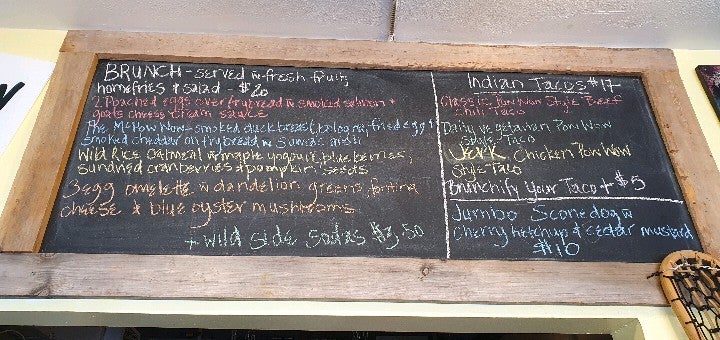 BRUNCH - served w fresh fruit,
homefries & salad - $20
2 Poached eggs over frybread w smoked salmon +
goats cheese cream sauce
The McHow Now - smoked duck breast, bologna, fried egg +
smoked cheddar on frybread w Sumac mash
Wild Rice Oatmeal w maple yogourt, blueberries,
sundried cranberries & pumpkin seeds
3 egg omelette w dandelion greens,
cheese & blue oyster mushrooms
+ wild side sodas $3.50
Indian Tacos $17
Classic Pow Wow Style Beef
Chili Taco
Daily vegetarian Pow Wow
Style Taco
Jerk Chicken Pow Wow
Style Taco
Brunchify Your Taco + $5
Jumbo Scone dog w
cherry ketchup & cedar mustard
$10